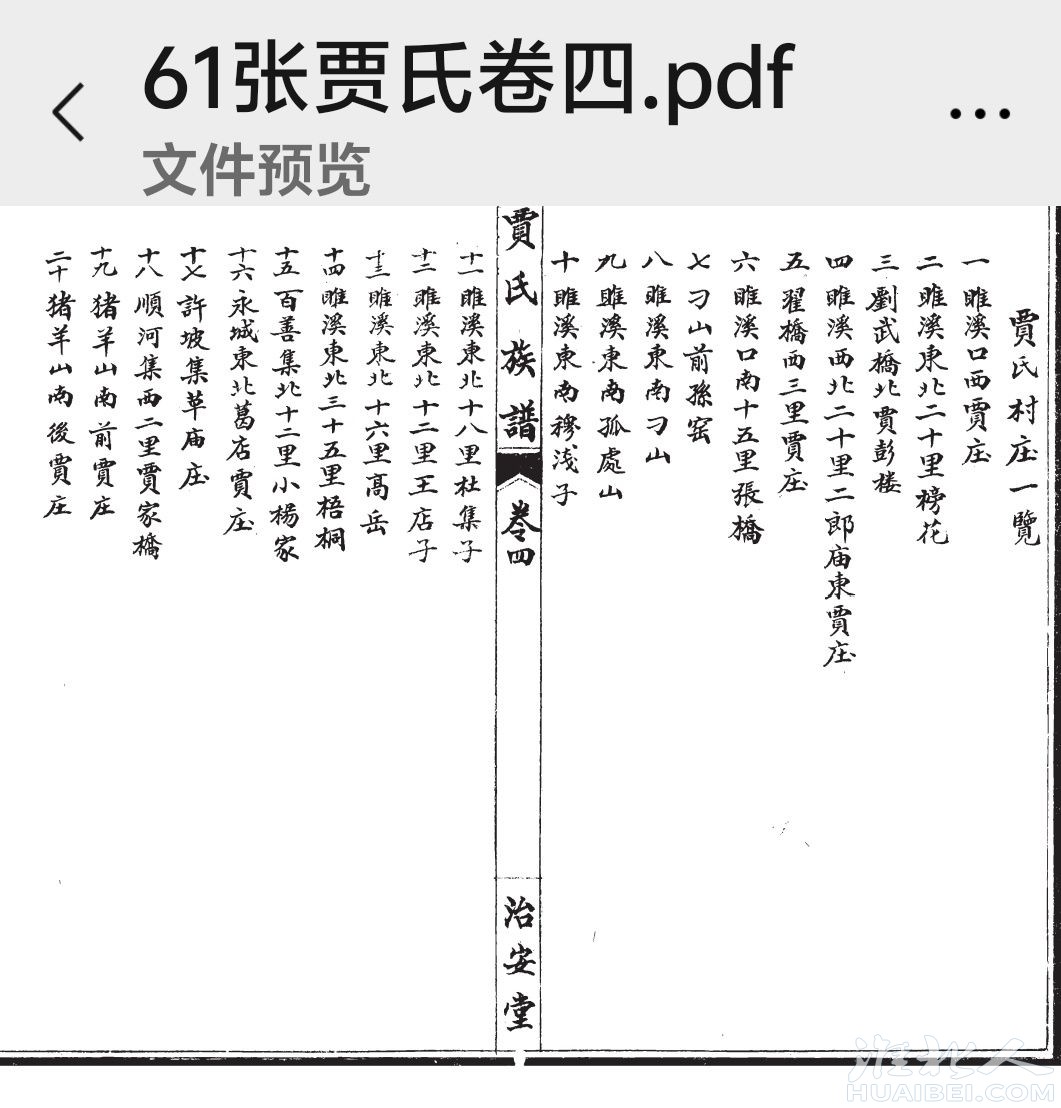 61张贾氏卷四.pdf
文件预览
賈氏村庄一覽
一睢溪口西賈庄
二睢溪東北二十里榜花
三劉武橋北賈彭楼
四睢溪西北二十里二郎庙東賈庄
五翟橋西三里賈庄
六睢溪口南十五里張橋
七刁山前孫窑
八睢溪東南刁山
九睢溪東南孤處山
十睢溪東南穆淺子
賈氏族譜
卷四
治安堂
十一睢溪東北十八里杜集子
十二睢溪東北十二里王店子
十三睢溪東北十六里高岳
十四睢溪東北三十五里梧桐
十五百善集北十二里小楊家
十六永城東北葛店賈庄
十七許坡集草庙庄
十八順河集西二里賈家橋
十九猪羊山南前賈庄
二十猪羊山南後賈庄
淮北人
HUAIBEI.COM